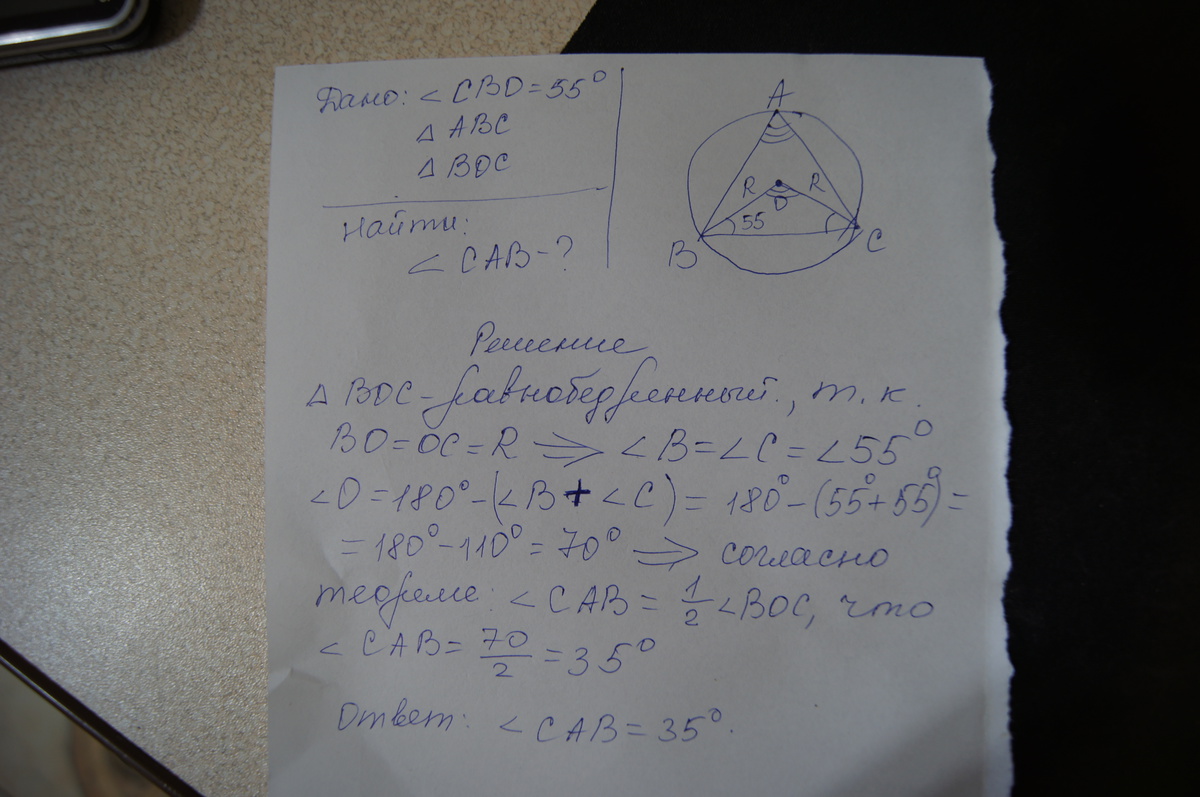 Дано: ∠ CBO = 55°
Δ ABC
Δ BOC
Найти:
∠ CAB - ?
A
R R
O
55
B
C
Решение
Δ BOC - равнобедренный., т. к.
BO = OC = R ⇒ ∠B = ∠C = ∠55°
∠O = 180° - (∠B + ∠C) = 180° - (55° + 55°) =
= 180° - 110° = 70° ⇒ согласно
теореме: ∠ CAB = 1/2 ∠BOC, что
∠ CAB = 70/2 = 35°
Ответ: ∠ CAB = 35°.